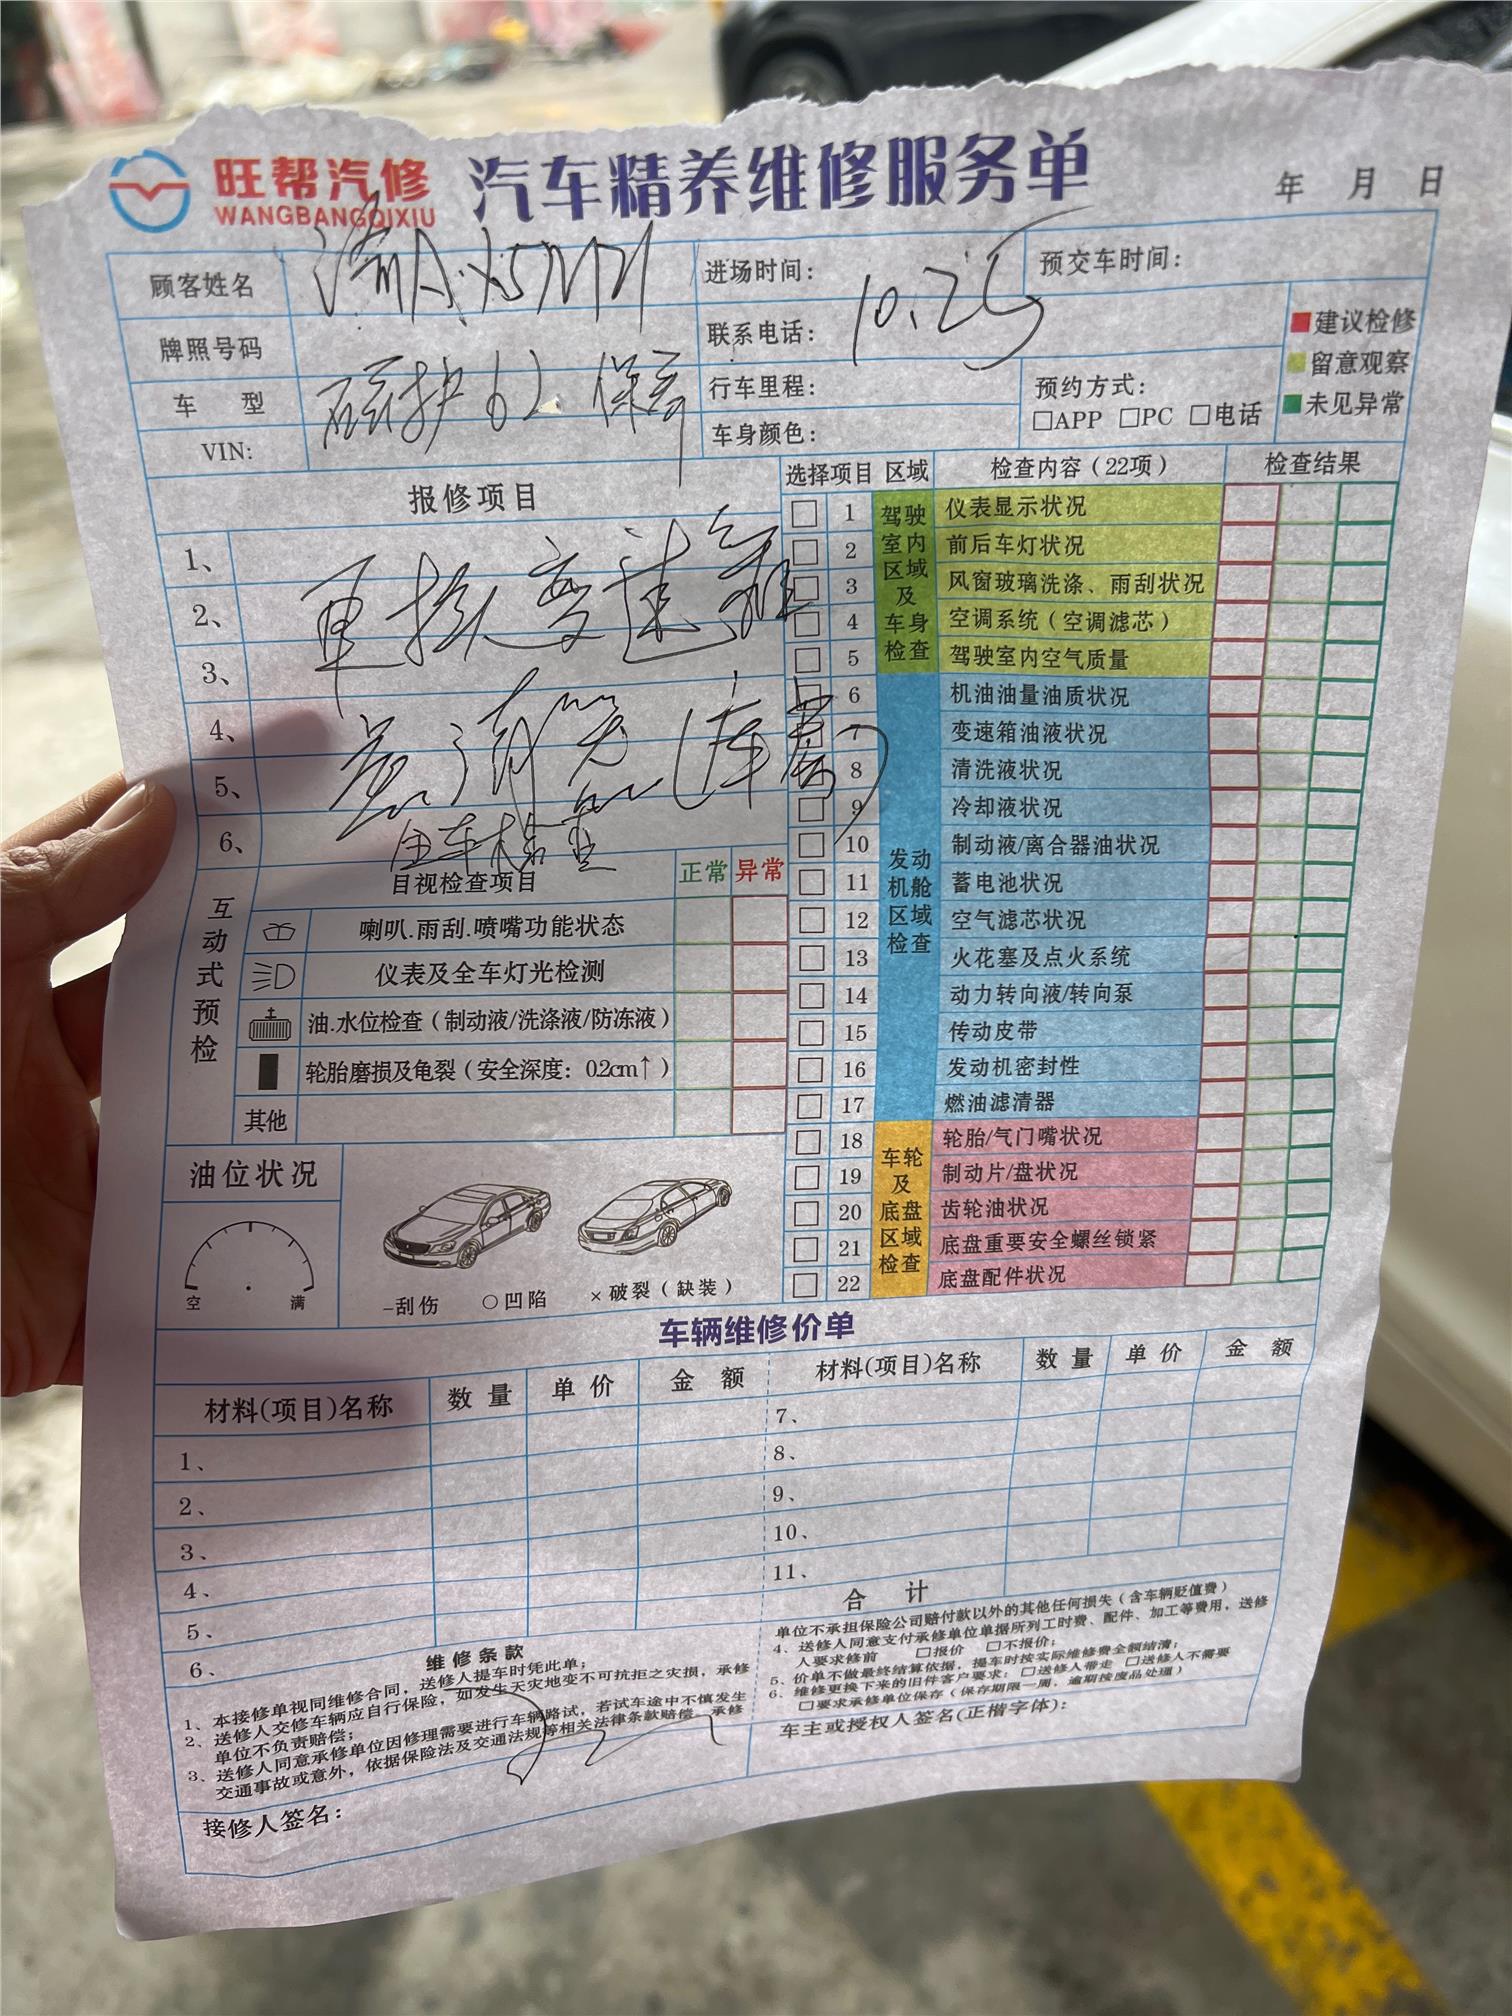 旺帮汽修
WANGBANGQIXIU
汽车精养维修服务单
年 月 日
顾客姓名
进场时间:
10.25
预交车时间:
牌照号码
联系电话:
车 型
磁护6L 保养
行车里程:
预约方式:
□APP □PC □电话
VIN:
车身颜色:
建议检修
留意观察
未见异常
报修项目
1、
2、
更换变速箱
3、
4、
5、
6、
全车检查
选择项目 区域 检查内容（22项） 检查结果
驾驶室内区域及车身检查
1 仪表显示状况
2 前后车灯状况
3 风窗玻璃洗涤、雨刮状况
4 空调系统（空调滤芯）
5 驾驶室内空气质量
发动机舱区域检查
6 机油油量油质状况
7 变速箱油液状况
8 清洗液状况
9 冷却液状况
10 制动液/离合器油状况
11 蓄电池状况
12 空气滤芯状况
13 火花塞及点火系统
14 动力转向液/转向泵
15 传动皮带
16 发动机密封性
17 燃油滤清器
车轮及底盘区域检查
18 轮胎/气门嘴状况
19 制动片/盘状况
20 齿轮油状况
21 底盘重要安全螺丝锁紧
22 底盘配件状况
互动式预检
目视检查项目 正常 异常
喇叭.雨刮.喷嘴功能状态
仪表及全车灯光检测
油.水位检查（制动液/洗涤液/防冻液）
轮胎磨损及龟裂（安全深度：0.2cm↑）
其他
油位状况
空 满
-刮伤 ○凹陷 ×破裂（缺装）
车辆维修价单
材料(项目)名称 数 量 单 价 金 额 材料(项目)名称 数 量 单 价 金 额
1、 7、
2、 8、
3、 9、
4、 10、
5、 11、
6、 合 计
维修条款
1、本接修单视同维修合同，送修人提车时凭此单；
2、送修人交修车辆应自行保险，如发生天灾地变不可抗拒之灾损，承修
单位不负责赔偿；
3、送修人同意承修单位因修理需要进行车辆路试，若试车途中不慎发生
交通事故或意外，依据保险法及交通法规等相关法律条款赔偿，承修
单位不承担保险公司赔付款以外的其他任何损失（含车辆贬值费）
4、送修人同意支付承修单位单据所列工时费、配件、加工等费用，送修
人要求修前 □报价 □不报价；
5、价单不做最终结算依据，提车时按实际维修费全额结清；
6、维修更换下来的旧件客户要求：□送修人带走 □送修人不需要
□要求承修单位保存（保存期限一周，逾期按废品处理）
接修人签名：
车主或授权人签名(正楷字体)：